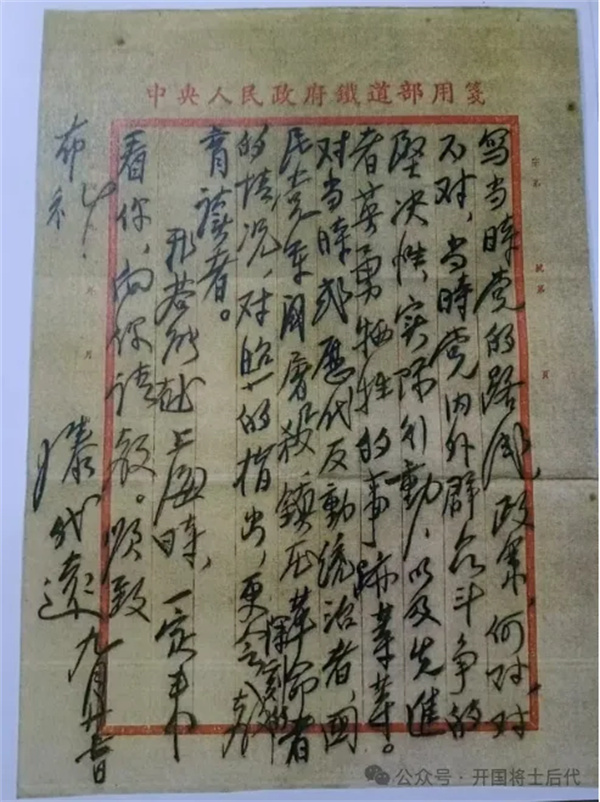 中央人民政府鐵道部用箋
寫当時党的路线政策,何对,
不对,当時党内外群众斗争的
堅决性实际行動,以及先進
者英勇牺牲的事跡等等。
对当時或歷代反動統治者,国
民党軍屠殺、鎮压革命者
的情况,对照的指出,更会深刻的教
育讀者。
我若能赴上海時,一定来
看你,向你請教。順致
布礼!
滕代遠 九月廿日
公众号·开国将士后代